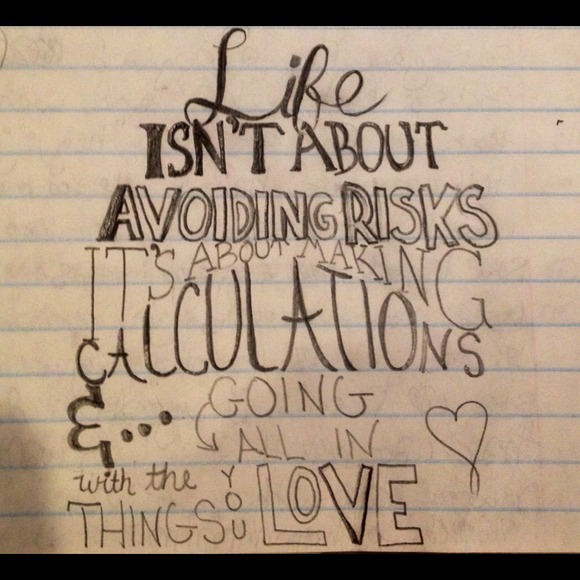 Life
ISN'T ABOUT
AVOIDING RISKS
IT'S ABOUT MAKING
CALCULATIONS
&... GOING
ALL IN
with the
THINGS YOU LOVE